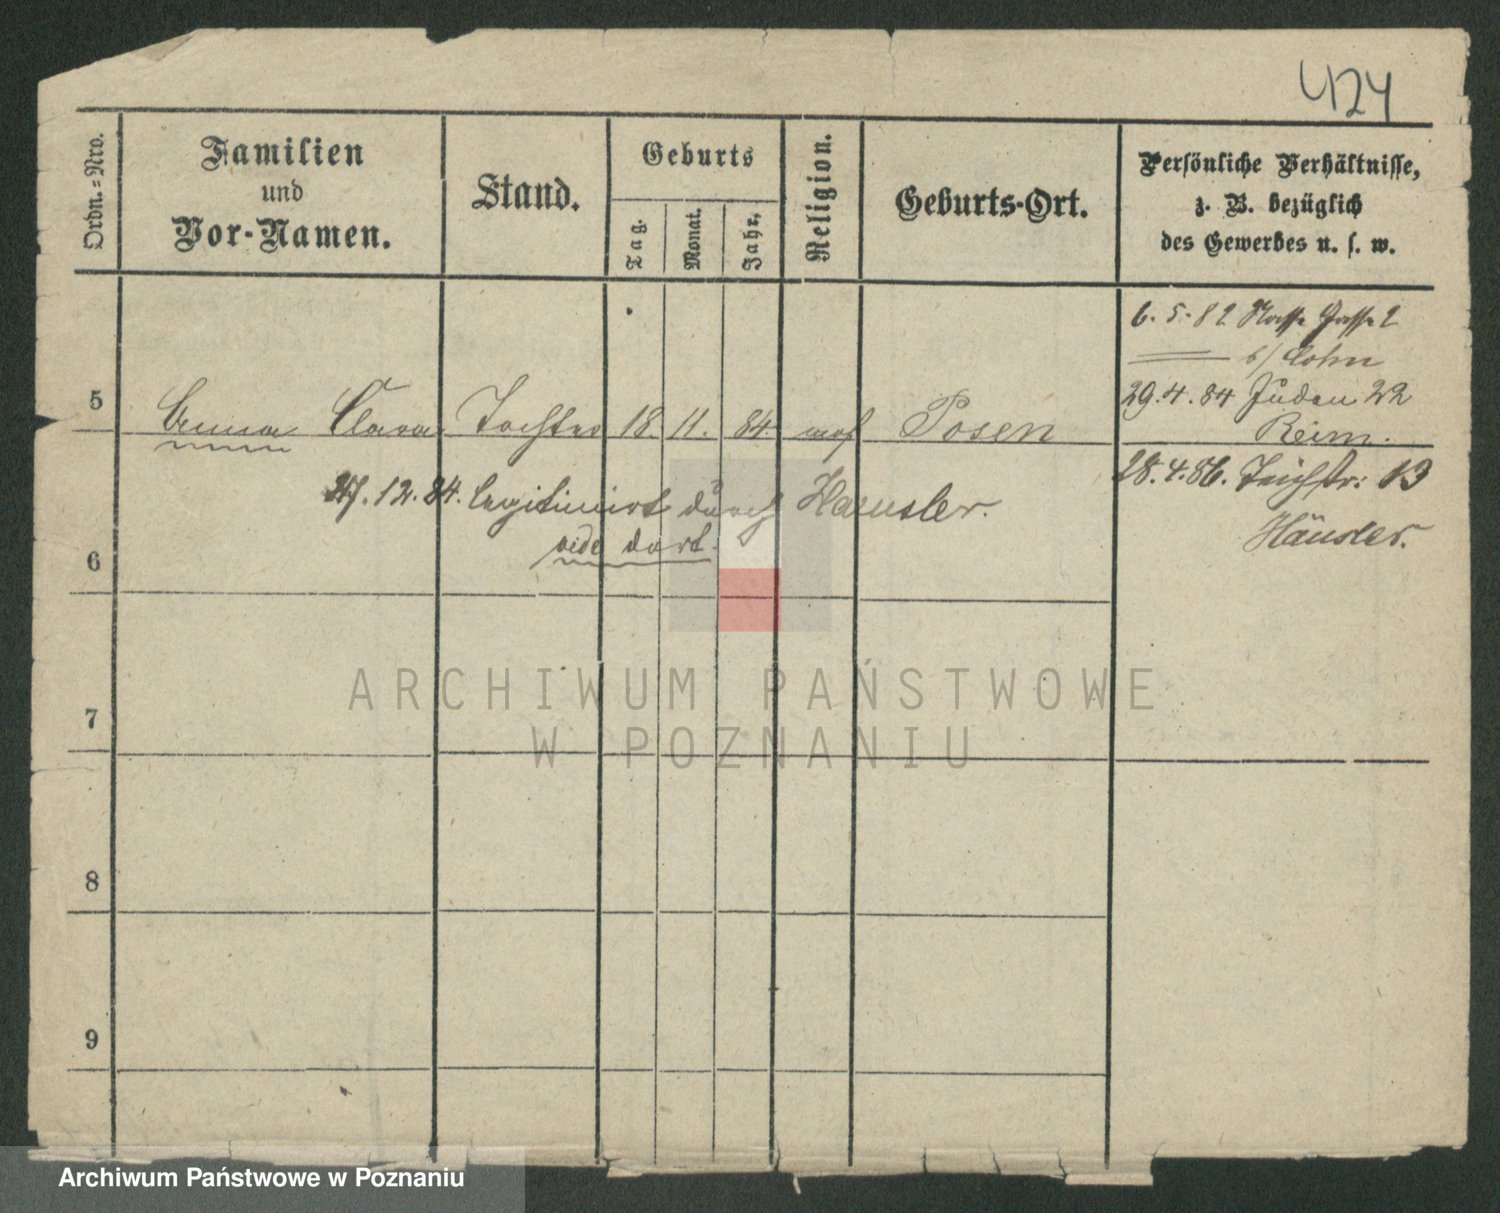 424
Ordn.=Nro.
Familien
und
Vor-Namen.
Stand.
Geburts
Tag.
Monat.
Jahr.
Religion.
Geburts-Ort.
Persönliche Verhältnisse,
z. B. bezüglich
des Gewerbes u. s. w.
6. 5. 82 Nasse Gasse 2
b/ Cohn
29. 4. 84 Juden 22
Reim.
5 Emma Clara Tochter 18. 11. 84. mos Posen
28. 4. 86. Teichstr: 13
Häusler.
27. 12. 84. legitimirt durch Haeusler.
vide dort.
6
7
8
9
ARCHIWUM PAŃSTWOWE
W POZNANIU
Archiwum Państwowe w Poznaniu